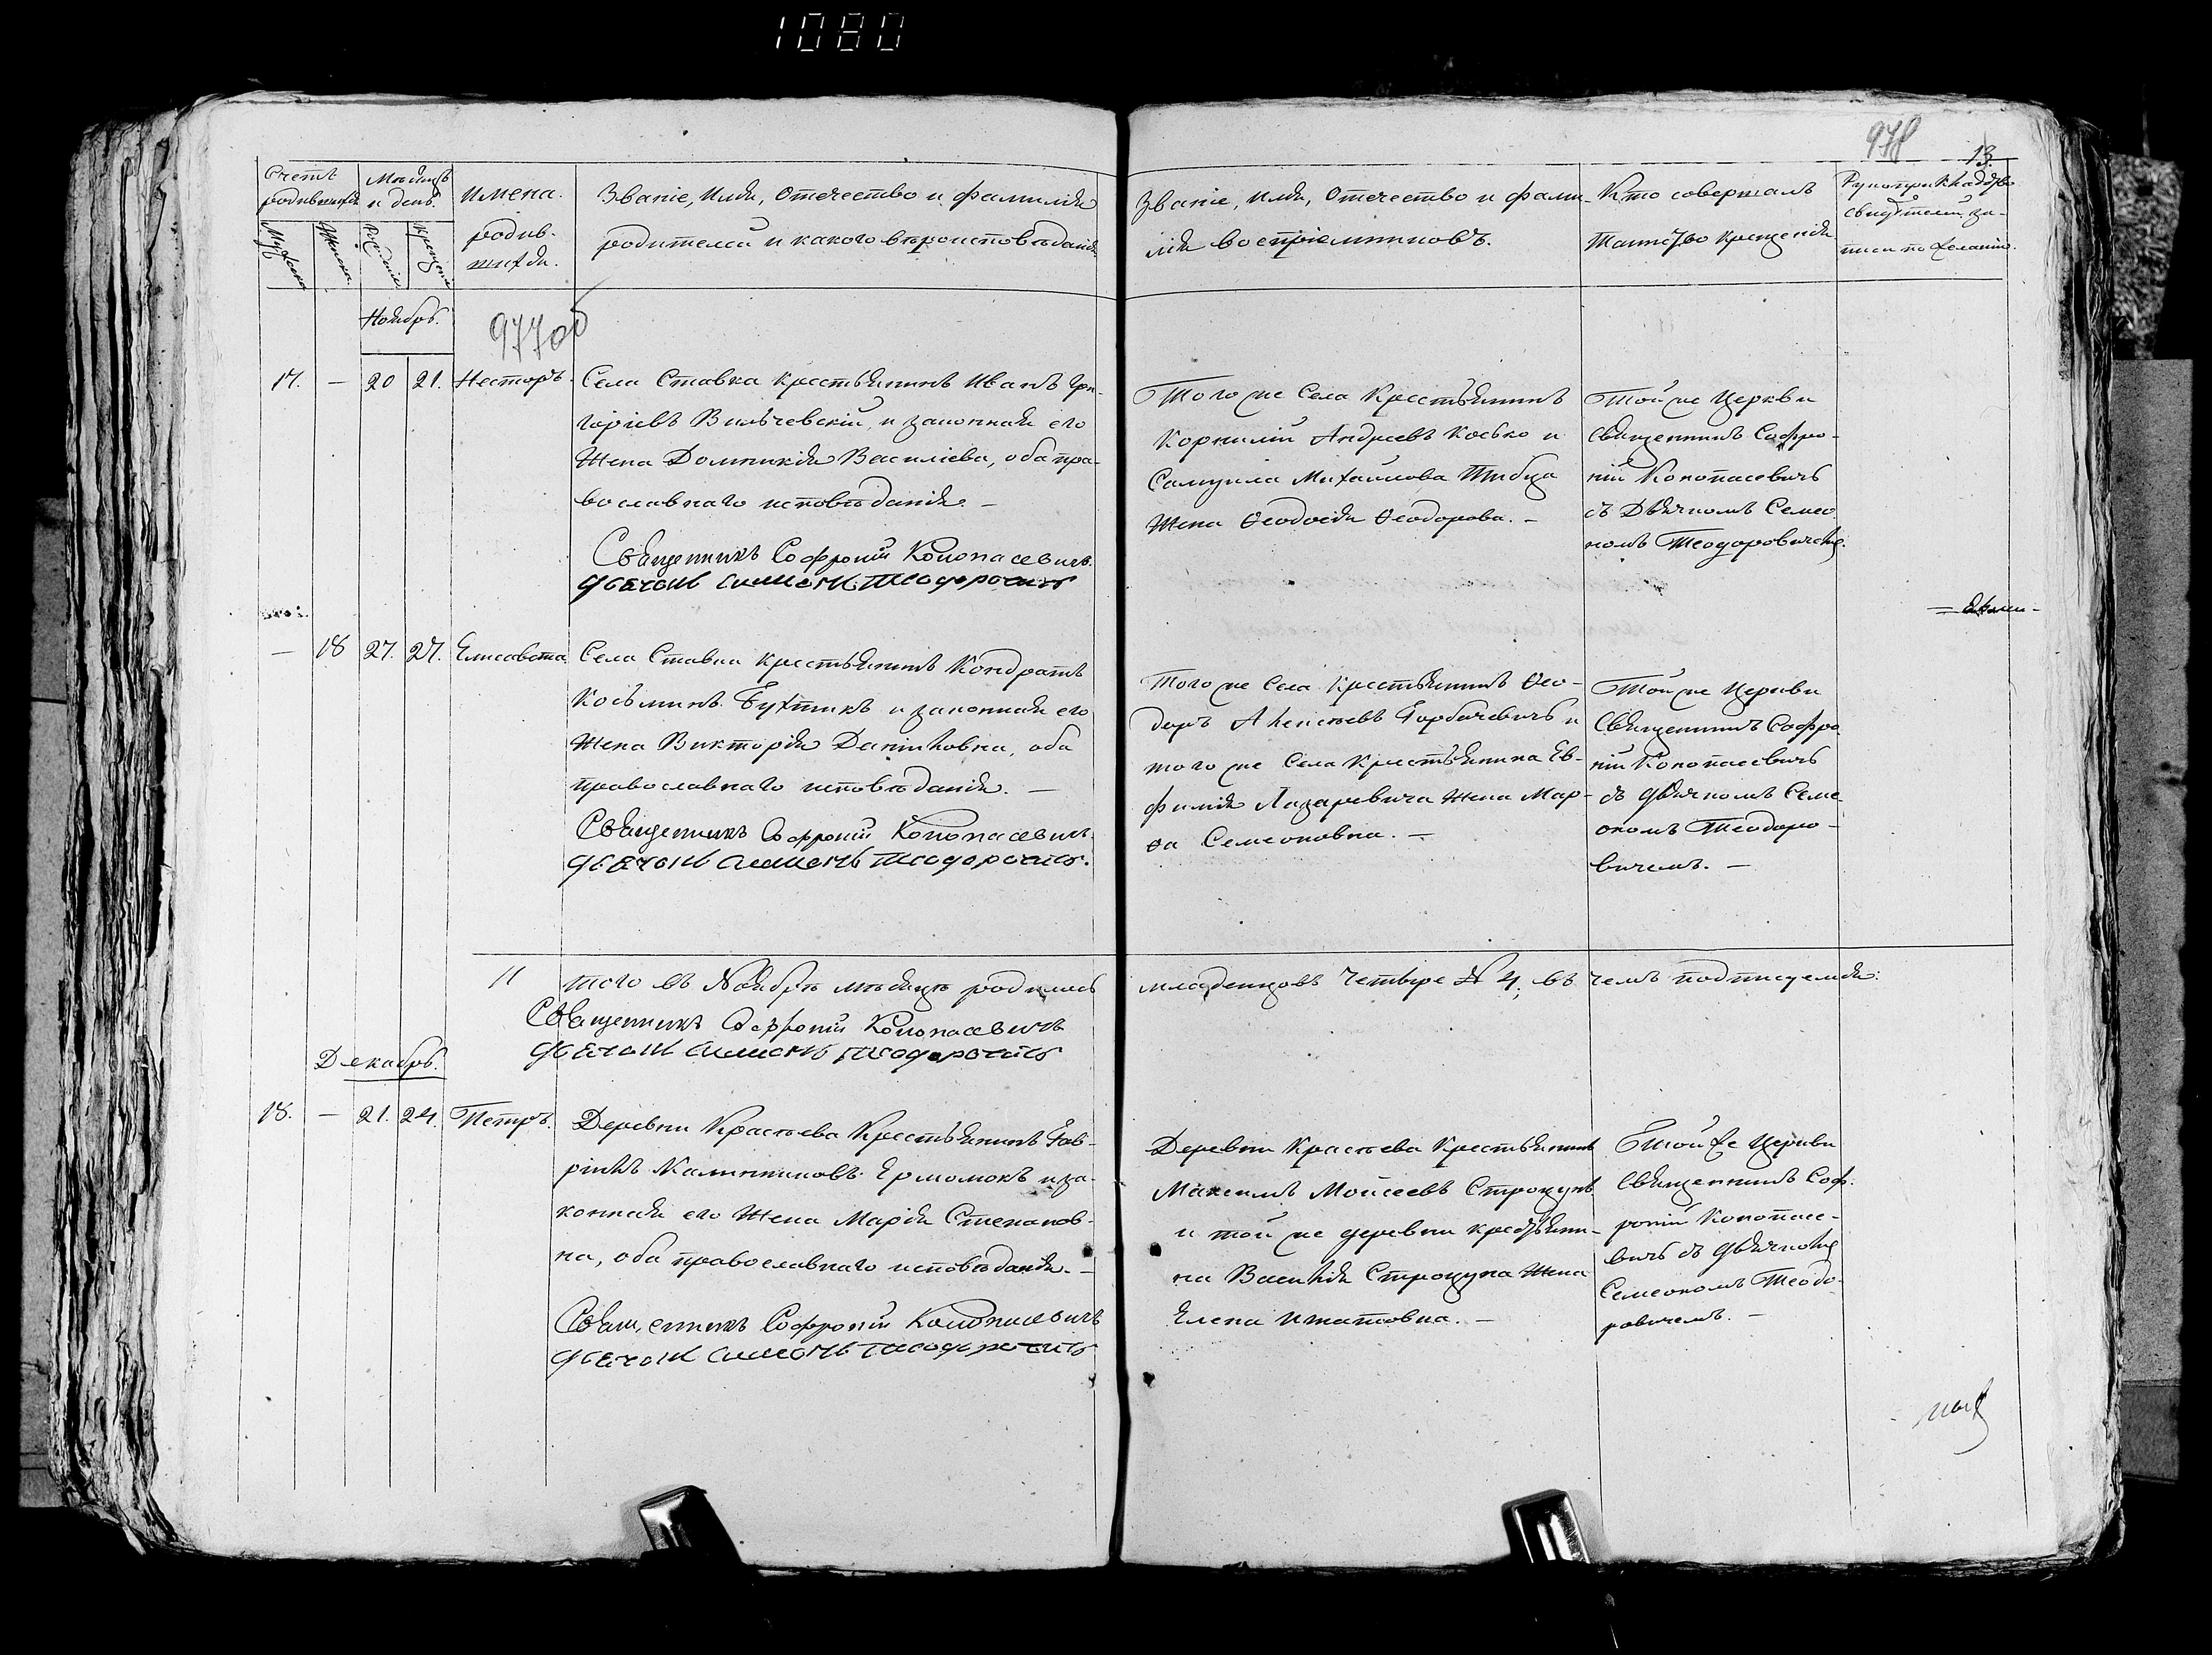 1080
978
13.
Счетъ родившихся
Мѣсяцъ и день.
Имена родив-
шихся.
Званіе, Имя, Отечество и фамилія
родителей и какого вѣроисповѣданія
Званіе, Имя, Отечество и фами-
лія воспріемниковъ.
Кто совершалъ
Таинство крещенія
Рукоприкладство
свидѣтелей за-
писи по желанію.
Мужеска
Женска
Рожденія
Крещенія
Ноябрь.
977об
17. — 20 21. Несторъ.
Села Ставка крестьянинъ Иванъ Гри-
горіевъ Вильчевскій, и законная его
Жена Домникія Василіева, оба пра-
вославнаго исповѣданія. —
Священникъ Софроній Конопасевичъ.
Дьячокъ Симеонъ Теодоровичъ
Того же Села Крестьянинъ
Корнилій Андреевъ Косько и
Самуила Михайлова Шибца
Жена Ѳеодосія Ѳеодорова. —
Той же Церкви
Священникъ Софро-
ній Конопасевичъ
съ Дьячкомъ Семео
номъ Теодоровичемъ.
— 18 27. 27. Елисавета
Села Ставки крестьянинъ Кондратъ
Косьминъ Бухтикъ и законная его
Жена Викторія Даніиловна, оба
православнаго исповѣданія. —
Священникъ Софроній Конопасевичъ.
Дьячокъ Симеонъ Теодоровичъ.
Того же Села Крестьянинъ Ѳео-
доръ Алексѣевъ Горбачевичъ и
того же Села Крестьянина Ев-
фимія Лазаревича Жена Мар-
ѳа Семеоновна. —
Той же Церкви
Священникъ Софро
ній Конопасевичъ
съ Дьячкомъ Семе-
ономъ Теодоро-
вичемъ. —
того въ Ноябрѣ мѣсяцѣ родилось младенцовъ четыре № 4, въ чемъ подписуемся:
Священникъ Софроній Конопасевичъ
Дьячокъ Симеонъ Теодоровичъ
Декабрь.
18. — 21. 24. Петръ.
Деревни Краснева Крестьянинъ Гав-
ріилъ Калинниковъ Ермомокъ и за-
конная его Жена Марія Степанов-
на, оба православнаго исповѣданія. —
Священникъ Софроній Конопасевичъ
Дьячокъ Симеонъ Теодоровичъ
Деревни Краснева Крестьянинъ
Максимъ Моисеевъ Строцукъ
и той же деревни крестьяни-
на Василія Строцука Жена
Елена Игнатовна. —
Той же Церкви
Священникъ Соф-
роній Конопасе-
вичъ съ Дьячкомъ
Семеономъ Теодо-
ровичемъ. —